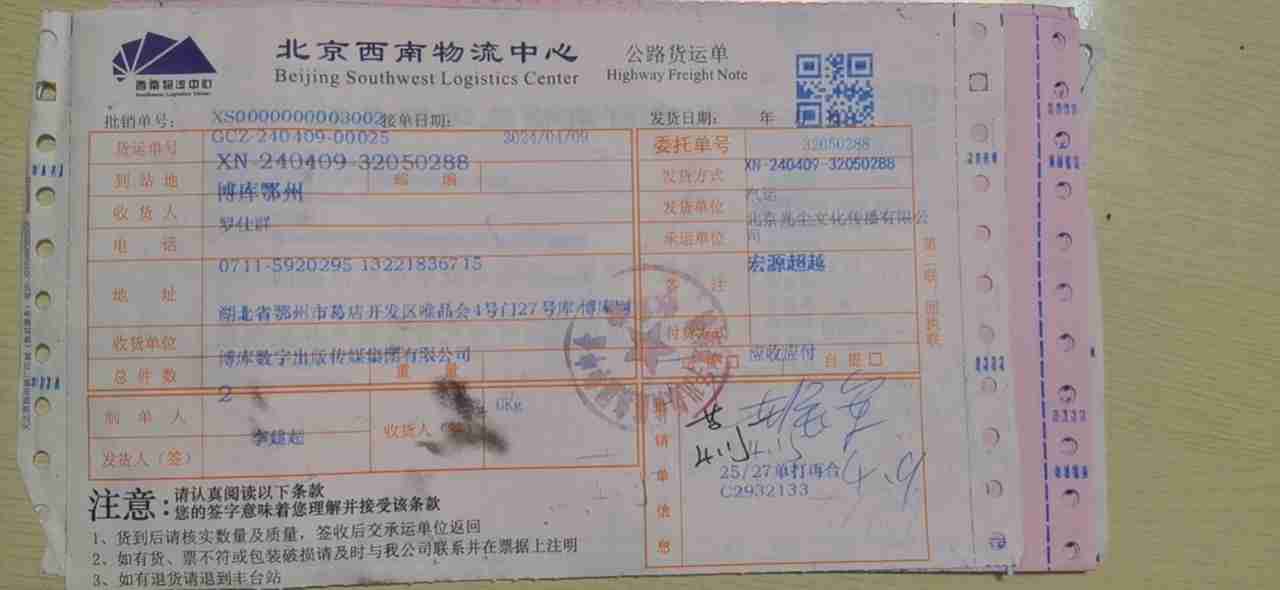 北京西南物流中心 公路货运单
Beijing Southwest Logistics Center Highway Freight Note
西南物流中心
Southwest Logistics Center
批销单号: XS0000000003002 接单日期: 发货日期: 年
货运单号 GCZ-240409-00025 2024/04/09 委托单号 32050288
XN-240409-32050288 XN-240409-32050288
到站地 博库鄂州 发货方式 汽运
收货人 罗仕群 发货单位 北京兆尘文化传播有限公司
电话 0711-5920295 13221836715 承运单位 宏源超越
地址 湖北省鄂州市葛店开发区唯品会4号门27号库 博库网 备注
收货单位 博库数字出版传媒集团有限公司 付货方式 应收应付
总件数 2 重量 自提口
6Kg
制单人 李建超 收货人(签)
发货人(签)
批销单信息
4.15
4.9
25/27单打再合
C2932133
第二联:回执联
注意: 请认真阅读以下条款
您的签字意味着您理解并接受该条款
1、货到后请核实数量及质量，签收后交承运单位返回
2、如有货、票不符或包装破损请及时与我公司联系并在票据上注明
3、如有退货请退到丰台站